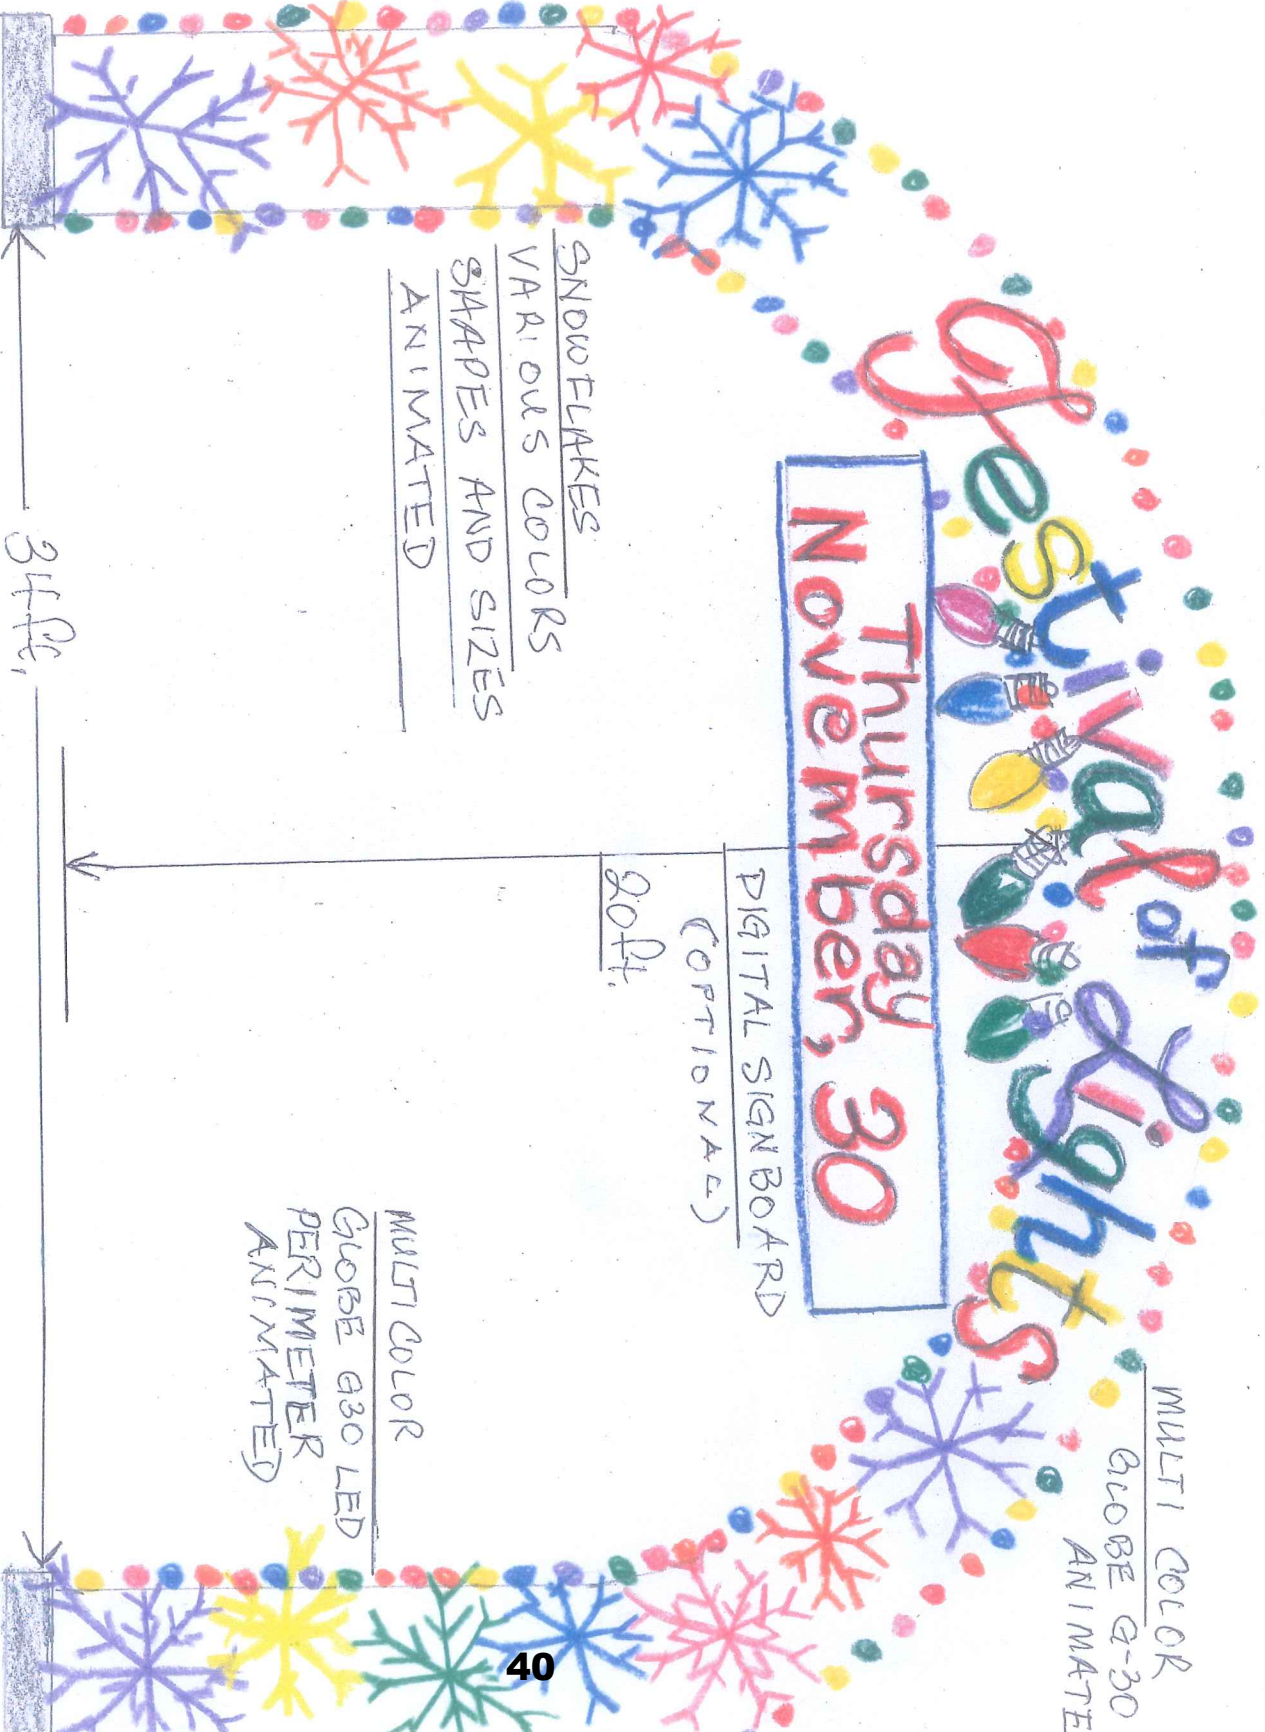 Festival of Lights
MULTI COLOR
GLOBE G-30
ANIMATE
Thursday
November, 30
DIGITAL SIGNBOARD
(OPTIONAL)
20ft.
SNOWFLAKES
VARIOUS COLORS
SHAPES AND SIZES
ANIMATED
MULTI COLOR
GLOBE G30 LED
PERIMETER
ANIMATED
34ft.
40